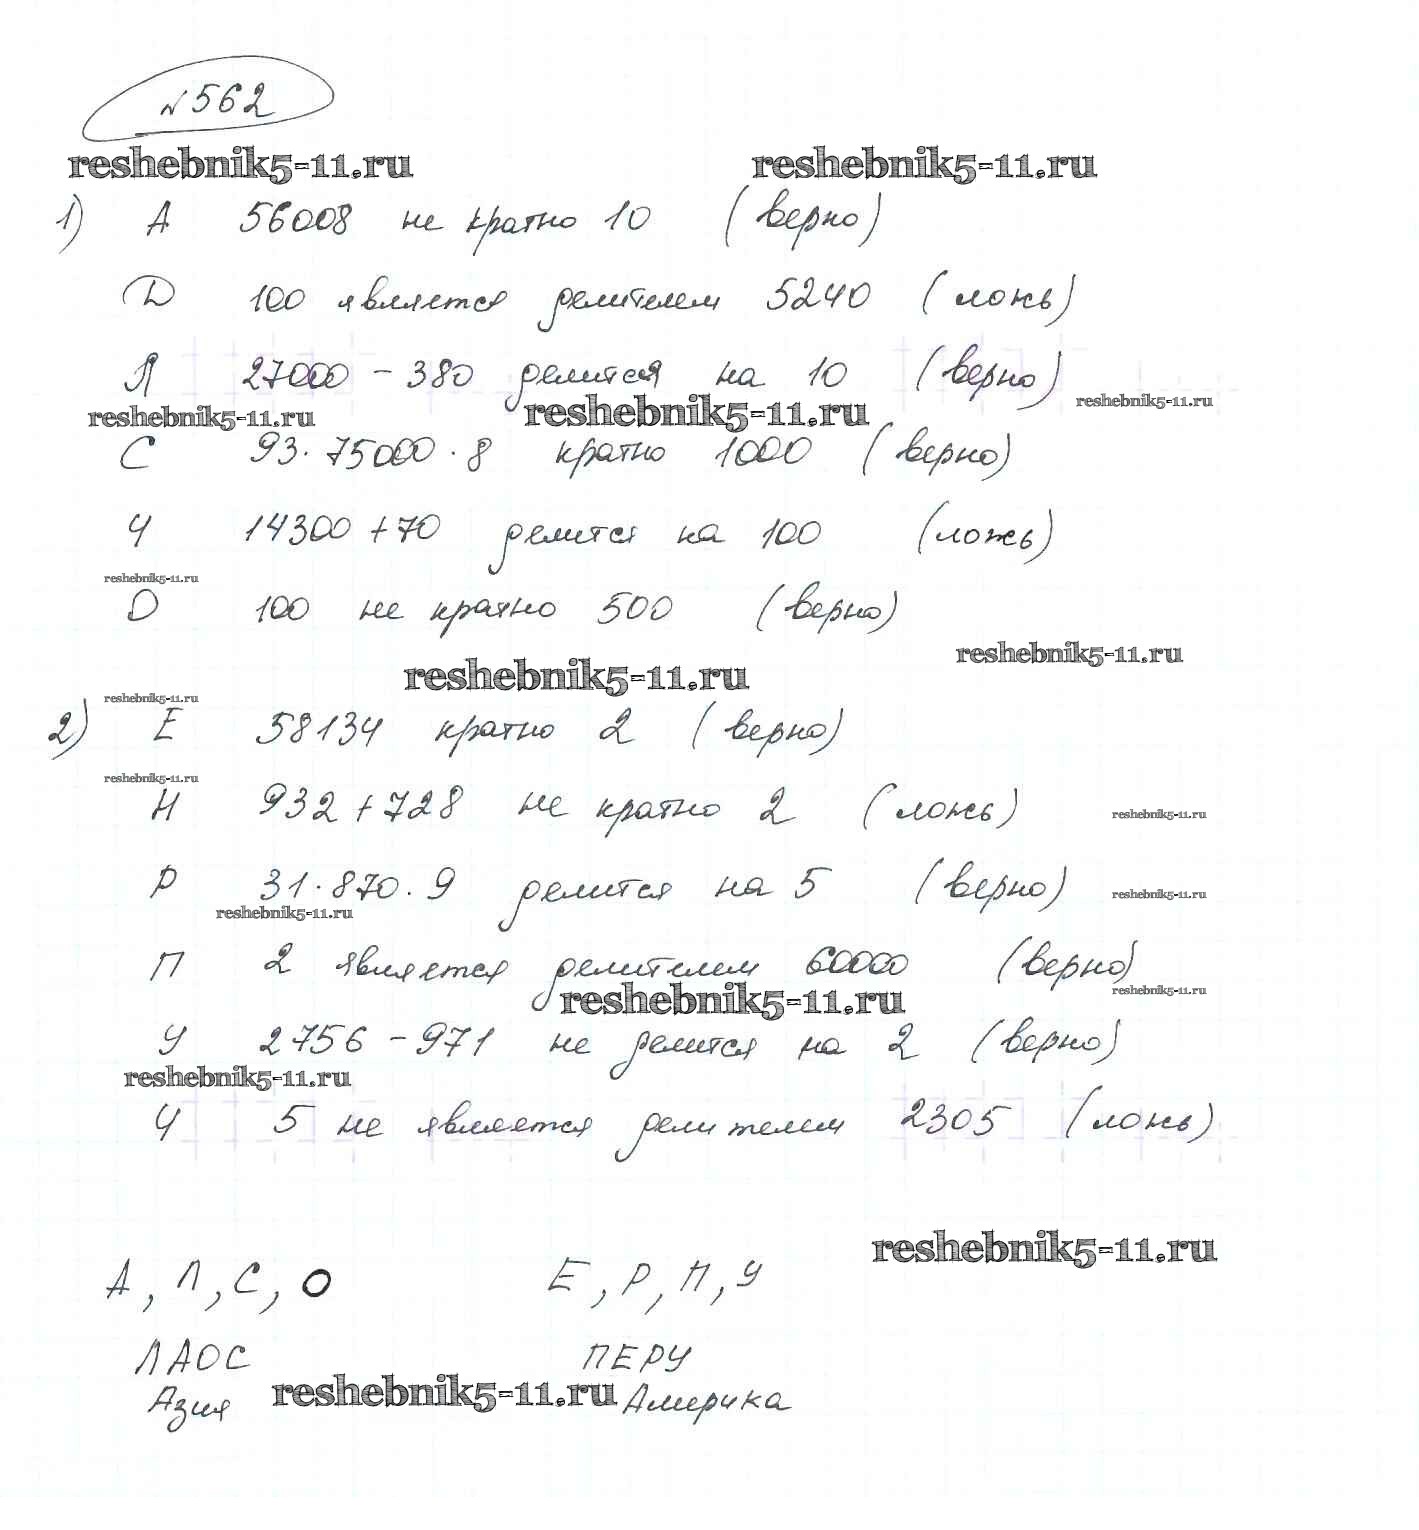 №562
reshebnik5-11.ru reshebnik5-11.ru
1) А 56008 не кратно 10 (верно)
D 100 является делителем 5240 (ложь)
Л 27000 - 380 делится на 10 (верно)
reshebnik5-11.ru reshebnik5-11.ru reshebnik5-11.ru
С 93·75000·8 кратно 1000 (верно)
Ч 14300 + 70 делится на 100 (ложь)
reshebnik5-11.ru
О 100 не кратно 500 (верно)
reshebnik5-11.ru
reshebnik5-11.ru
reshebnik5-11.ru
2) Е 58134 кратно 2 (верно)
reshebnik5-11.ru
Н 932 + 728 не кратно 2 (ложь)
reshebnik5-11.ru
Р 31·870·9 делится на 5 (верно)
reshebnik5-11.ru
reshebnik5-11.ru
П 2 является делителем 60000 (верно)
reshebnik5-11.ru reshebnik5-11.ru
У 2756 - 971 не делится на 2 (верно)
reshebnik5-11.ru
Ч 5 не является делителем 2305 (ложь)
reshebnik5-11.ru
А, Л, С, О Е, Р, П, У
ЛАОС ПЕРУ
Азия reshebnik5-11.ru Америка